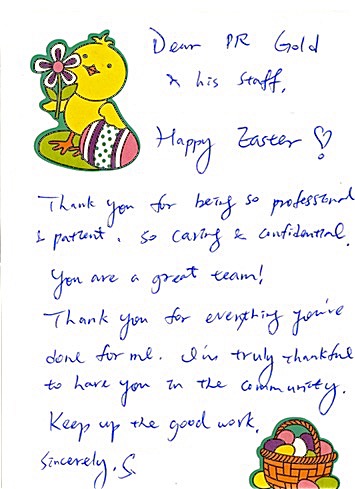 Dear DR Gold
& his staff,
Happy Easter!
Thank you for being so professional
& patient, so caring & confidential.
You are a great team!
Thank you for everything you've
done for me. I'm truly thankful
to have you in the community.
Keep up the good work.
Sincerely, S.